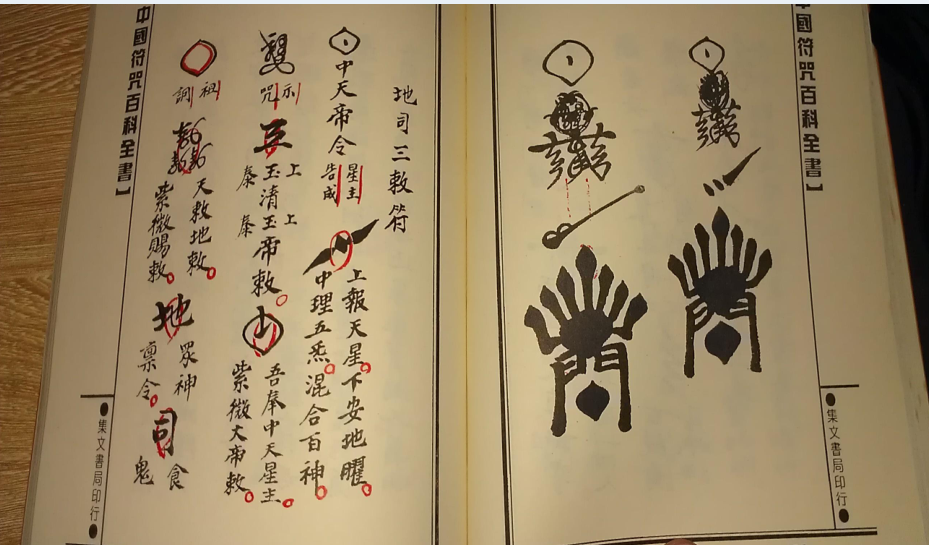 中國符咒百科全書】
●集文書局印行●
地司三敕符
中天帝令
星主
告成
上報天星。下安地曜。
中理五炁。混合百神。
示
咒
上
奉
玉清玉帝敕。
上
奉
吾奉中天星主。
紫微大帝敕。
祖
詞
天敕地敕。
紫微賜敕。
地
眾神
稟令。
司
食
鬼
中國符咒百科全書】
●集文書局印行●